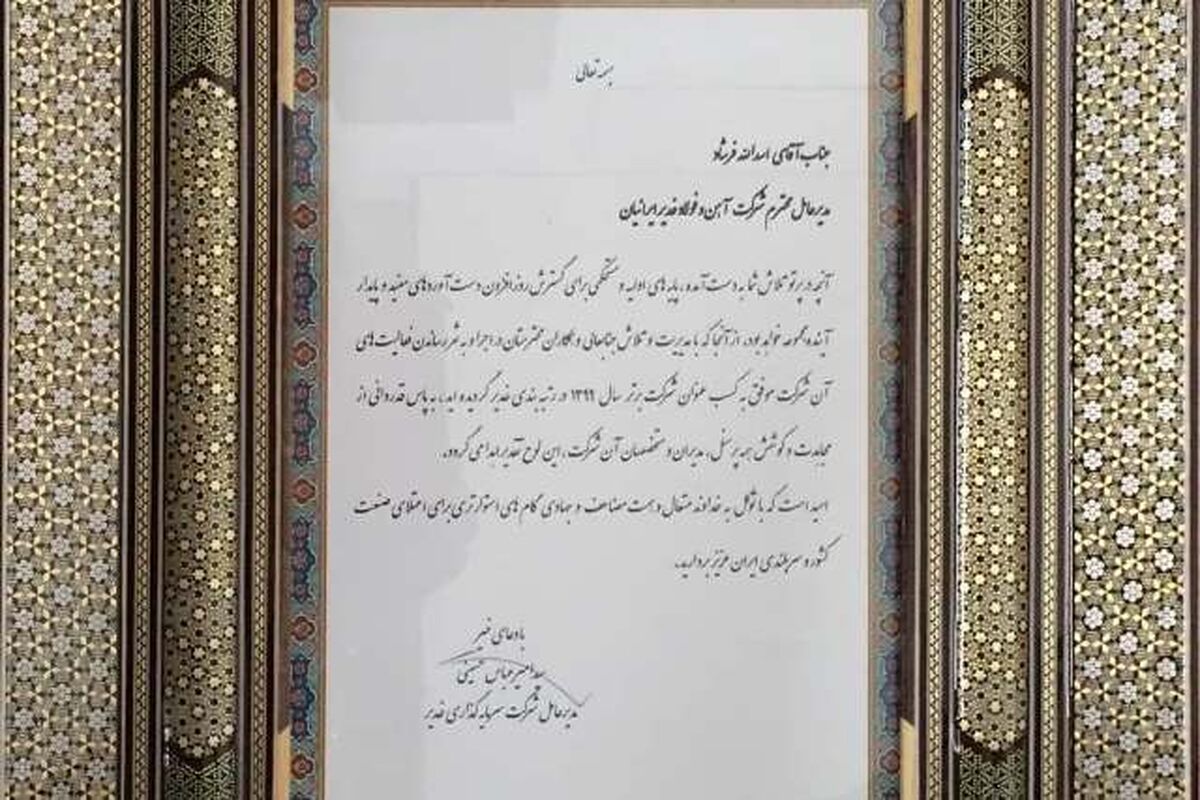 بسمه تعالی
جناب آقای اسدالله فرشاد
مدیرعامل محترم شرکت آهن و فولاد غدیر ایرانیان
آنچه در پرتو تلاش شما به دست آمده، پایه های اولیه و مستحکمی برای گسترش روزافزون دست آوردهای مفید و پایدار
آینده مجموعه خواهد بود. از آنجا که با مدیریت و تلاش جنابعالی و همکاران محترمتان در اجرا و به ثمر رساندن فعالیت های
آن شرکت موفق به کسب عنوان شرکت برتر سال ۱۳۹۹ در رتبه بندی غدیر گردیده اید، به پاس قدردانی از
مجاهدت و کوشش همه پرسنل، مدیران و متخصصان آن شرکت، این لوح تقدیر اهدا می گردد.
امید است که با توکل به خداوند متعال و همت مضاعف و جهادی گام های استوارتری برای اعتلای صنعت
کشور و سربلندی ایران عزیز بردارید.
با دعای خیر
سید امیرعباس حسینی
مدیرعامل شرکت سرمایه گذاری غدیر